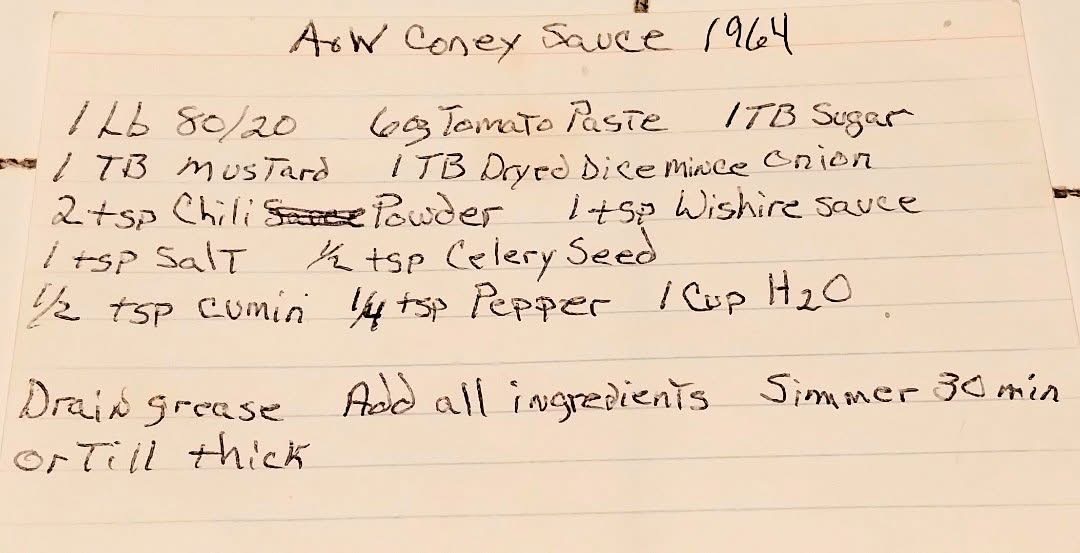 A&W Coney Sauce 1964
1 Lb 80/20 6oz Tomato Paste 1TB Sugar
1 TB Mustard 1 TB Dryed Dice mince onion
2 tsp Chili Powder 1 tsp Wishire sauce
1 tsp Salt ½ tsp Celery Seed
½ tsp cumin ¼ tsp Pepper 1 Cup H2O
Drain grease Add all ingredients Simmer 30 min
or Till thick